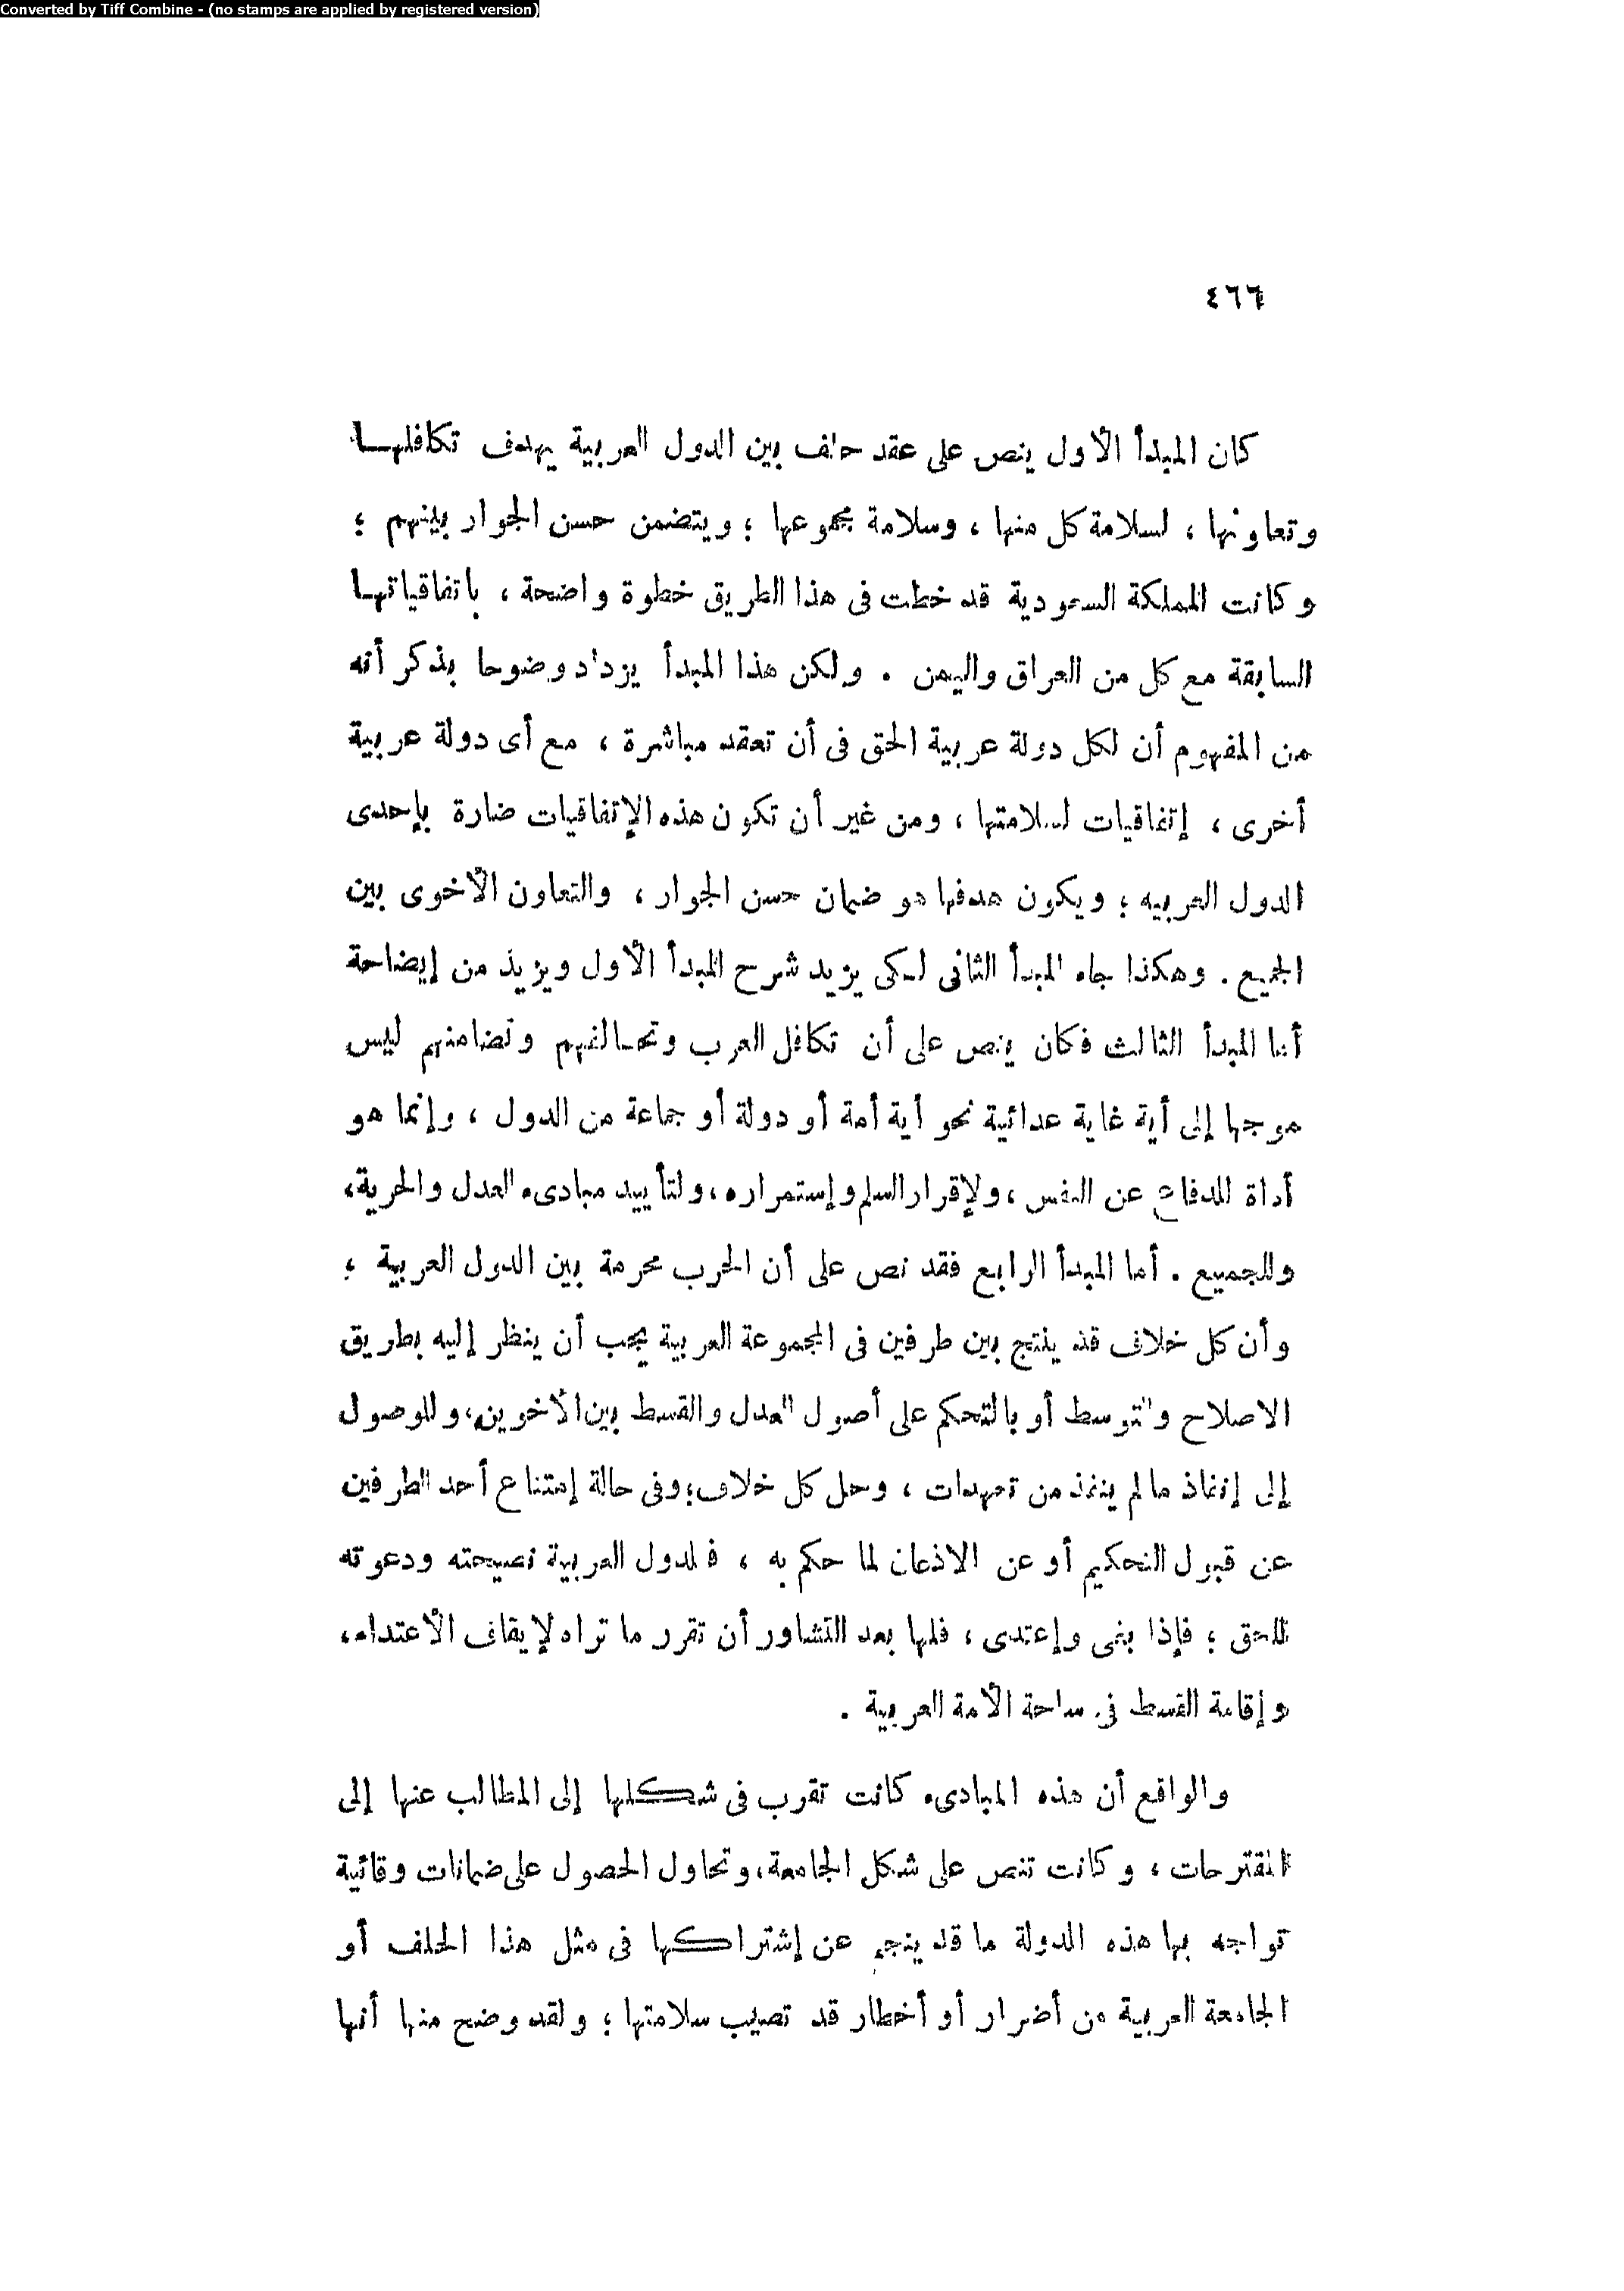 Converted by Tiff Combine - (no stamps are applied by registered version)
٤٦٦
كان المبدأ الأول ينص على عقد حلف بين الدول العربية يهدف تكافلها
وتعاونها ، لسلامة كل منها ، وسلامة مجموعها ؛ ويتضمن حسن الجوار بينهم ؛
وكانت المملكة السعودية قد خطت فى هذا الطريق خطوة واضحة ، باتفاقياتها
السابقة مع كل من العراق واليمن . ولكن هذا المبدأ يزداد وضوحا بذكر أنه
من المفهوم أن لكل دولة عربية الحق فى أن تعقد مباشرة ، مع أى دولة عربية
أخرى ، إتفاقيات لسلامتها ، ومن غير أن تكون هذه الإتفاقيات ضارة بإحدى
الدول العربيه ؛ ويكون هدفها هو ضمان حسن الجوار ، والتعاون الأخوى بين
الجميع . وهكذا جاء المبدأ الثانى لكى يزيد شرح المبدأ الأول ويزيد من إيضاحة
أما المبدأ الثالث فكان ينص على أن تكافل العرب وتحالفهم وتضامنهم ليس
موجها إلى أية غاية عدائية نحو أية أمة أو دولة أو جماعة من الدول ، وإنما هو
أداة للدفاع عن النفس ، ولإقرار السلم وإستمراره ، ولتأييد مبادىء العدل والحرية،
وللجميع . أما المبدأ الرابع فقد نص على أن الحرب محرمة بين الدول العربية ؛
وأن كل خلاف قد ينتج بين طرفين فى المجموعة العربية يجب أن ينظر إليه بطريق
الاصلاح والتوسط أو بالتحكم على أصول العدل والقسط بين الأخوين، وللوصول
إلى إنفاذ ما لم ينفذ من تعهدات ، وحل كل خلاف ؛ وفى حالة إمتناع أحد الطرفين
عن قبول التحكيم أو عن الاذعان لما حكم به ، فللدول العربية نصيحته ودعوته
للحق ؛ فإذا بغى وإعتدى ، فلها بعد التشاور أن تقرر ما تراه لإيقاف الأعتداء،
وإقامة القسط فى ساحة الأمة العربية .
والواقع أن هذه المبادىء كانت تقرب فى شكلها إلى المطالب عنها إلى
المقترحات ، وكانت تنص على شكل الجامعة، وتحاول الحصول على ضمانات وقائية
تواجه بها هذه الدولة ما قد ينجم عن إشتراكها فى مثل هذا الحلف أو
الجامعة العربية من أضرار أو أخطار قد تصيب سلامتها ؛ ولقد وضح منها أنها